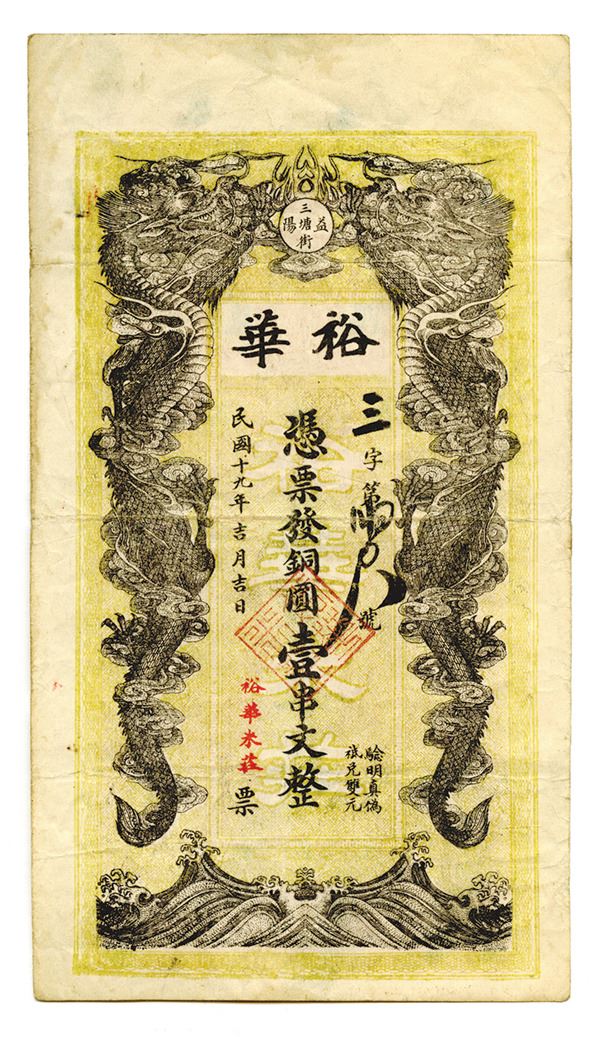 益陽
三塘街
裕華
三字第號
驗明真偽
祗兌雙元
憑票發銅圓壹串文整
民國十九年吉月吉日
裕華米莊票